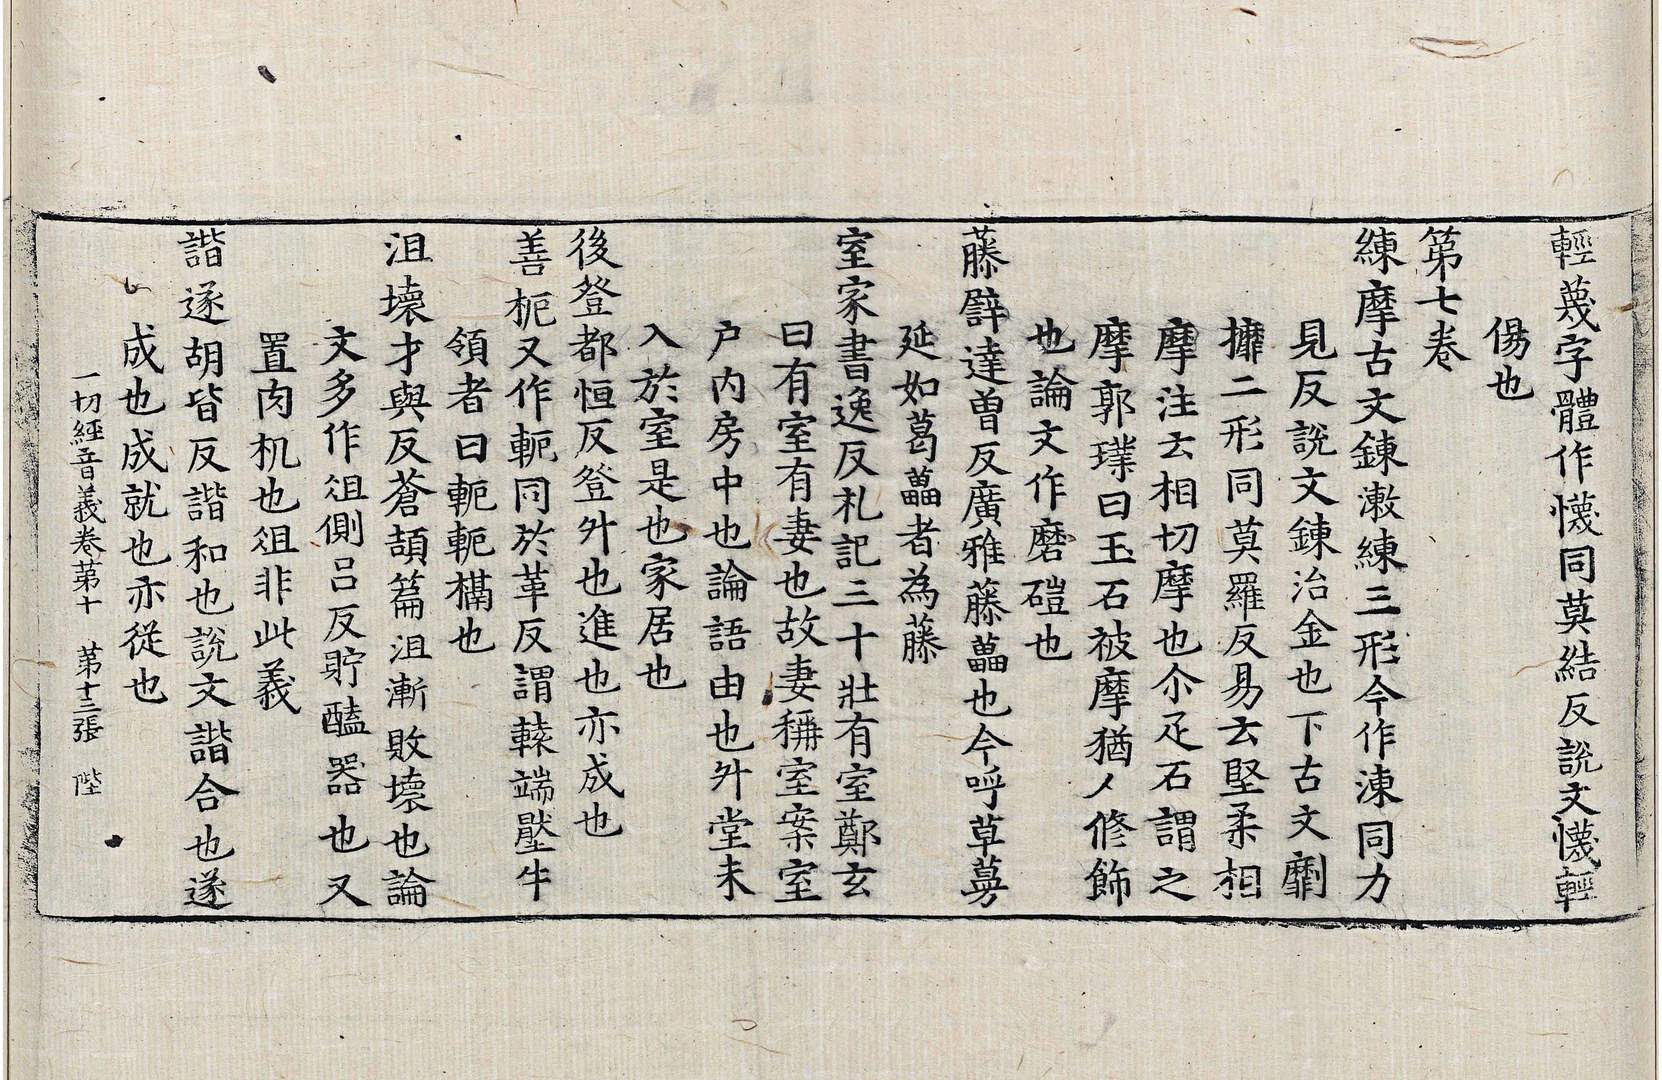 輕蔑字體作懱同莫結反說文懱輕
傷也
第七卷
練摩古文鍊漱練三形今作湅同力
見反說文鍊治金也下古文劘
攠二形同莫羅反易云堅柔相
摩注云相切摩也尒疋石謂之
摩郭璞曰玉石被摩猶人脩飾
也論文作磨磑也
藤薜達曽反廣雅藤藟也今呼草蔓
延如葛藟者為藤
室家書逸反札記三十壯有室鄭玄
曰有室有妻也故妻稱室案室
戶內房中也論語由也升堂未
入於室是也家居也
後登都恒反登升也進也亦成也
善軛又作軶同於革反謂轅端壓牛
領者曰軛軛槅也
沮壞才與反蒼頡篇沮漸敗壞也論
文多作俎側呂反貯醢器也又
置肉机也俎非此義
諧遂胡皆反諧和也說文諧合也遂
成也成就也亦從也
一切經音義卷第十 第十三張 陛